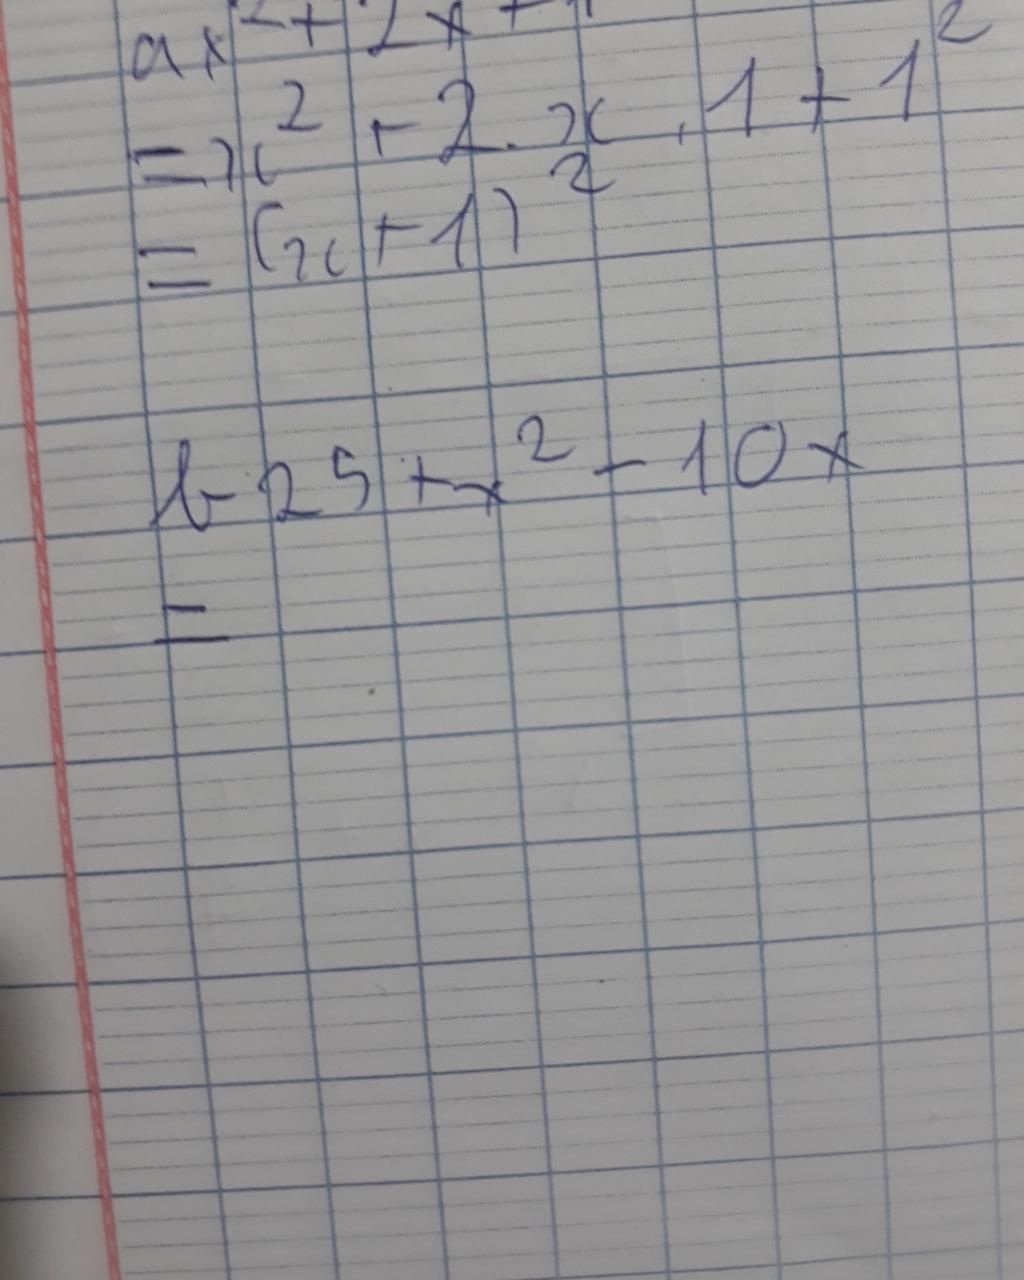 a x² + 2x + 1
= x² + 2 . x . 1 + 1²
= (x + 1)²
b 25 + x² - 10x
=